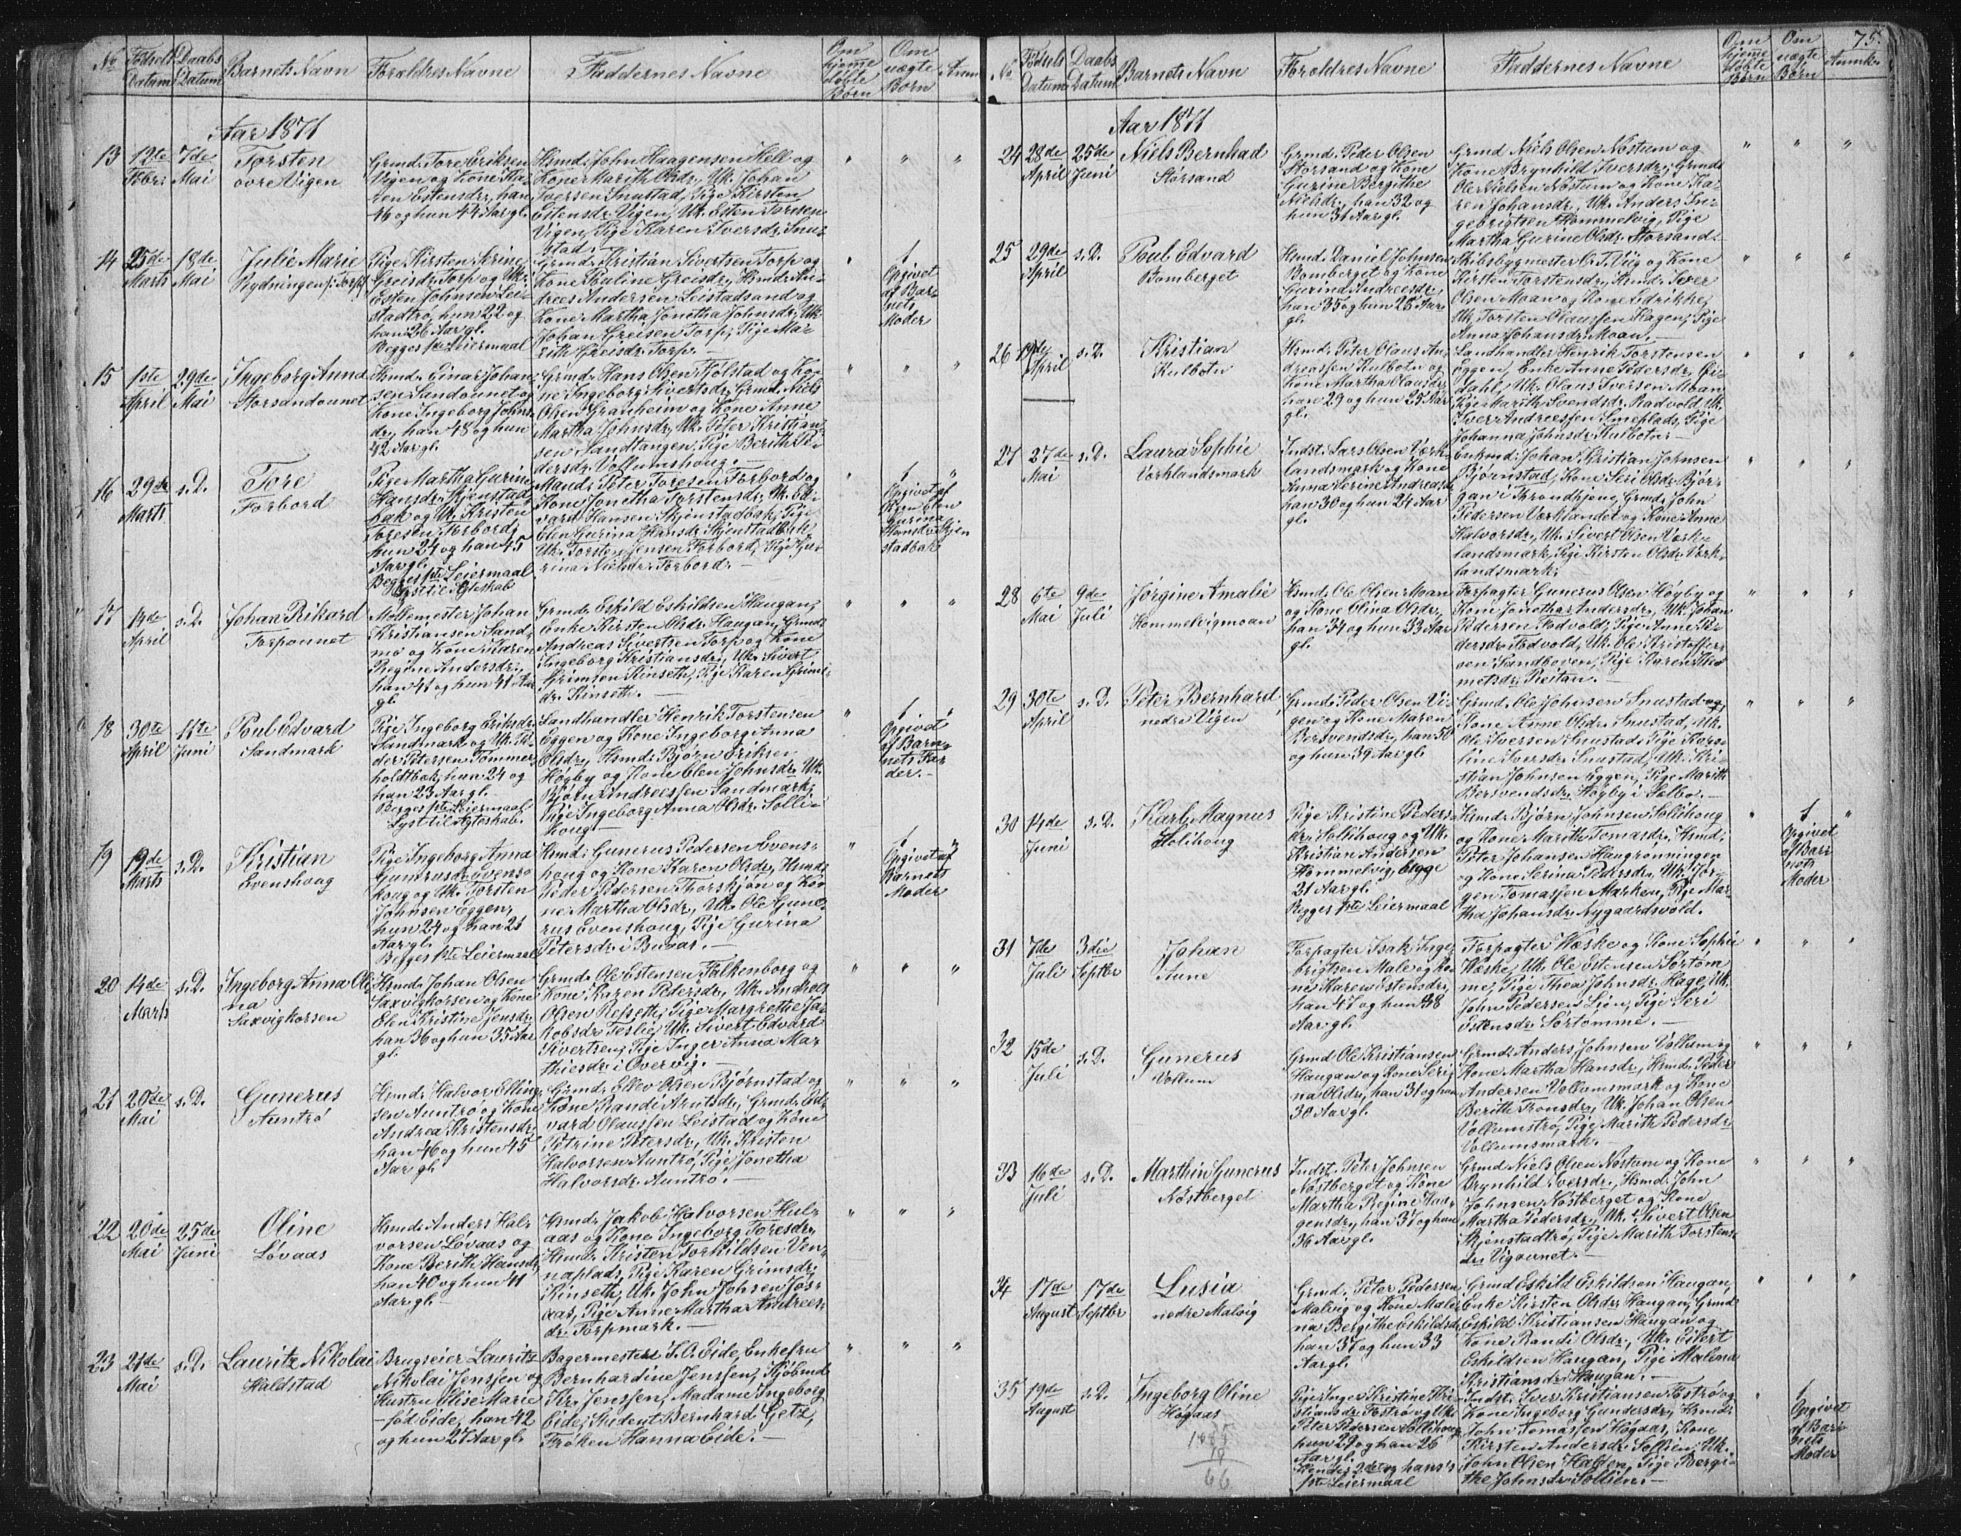 75.
No
Fødsels Datum
Daabs Datum
Barnets Navn
Forældres Navne
Faddernes Navne
Om hjemmedøbte Børn
Om uægte Børn
Aar 1871
13
12te Febr:
7de Mai
Torsten
øvre Vigen
Grmd: Tore Eriksen
Vigen og Kone Ka-
ren Estensdr, han
46 og hun 44 Aar gl.
Hsmd: John Haagensen Hell og
Kone Marith Olsdr, Uk. Johan
Iversen Snustad, Pige Kirsten
Estensdr. Vigen, Uk. Esten Toresen
Vigen, Pige Karen Iversdr. Snu-
stad.
14
25de Marts
18de Mai
Julie Marie
Rydningen p. Torp
Pige Kirsten Serine
Greisdr. Torp og Uk.
Esten Johnsen Lei-
stadtrø, hun 22 og
han 26 Aar gl.
Begges 1ste Leiermaal
Grmd: Kristian Sivertsen Torp og
Kone Pauline Greisdr, Hsmd: An-
dreas Andersen Leistadsand og
Kone Martha Jonetha Johnsdr, Uk.
Johan Greisen Torp, Pige Ma-
rith Greisdr. Torp.
1
Opgivet
af Bar-
nets
Moder
15
1ste April
29de Mai
Ingeborg Anna
Storsandaunet
Hsmd: Einar Johan-
sen Sandaunet og
Kone Ingeborg Johns-
dr, han 48 og hun
42 Aar gl.
Grmd: Hans Olsen Fjølstad og Ko-
ne Ingeborg Sivertsdr, Grmd: Niels
Olsen Granheim og Kone Anne
Martha Johnsdr, Uk. Peter Kristian-
sen Sandtangen, Pige Berith Pe-
dersdr. Vollumshoug.
16
29de Marts
s. D.
Tore
Forbord
Pige Martha Gurine
Hansdr. Skjenstad-
bak og Uk. Kristen
Toresen Forbord,
hun 24 og han 45
Aar gl.
Begges 1ste Leiermaal
Lyst til Ægteskab
Maud: Peter Toresen Forbord og
Kone Jonetha Torstensdr, Uk. Ed-
vard Hansen Skjenstadbak, Pige
Elen Gurina Hansdr. Skjenstadbak
Uk. Torsten Jensen Forbord, Pige Gu-
rina Nielsdr. Forbord.
1
Opgivet af
Elen
Gurina
Hansdr. Skjen
stadbak
17
14de April
s. D.
Johan Rikard
Torpaunet
Møllemester Johan
Kristiansen Sand-
mo og Kone Karen
Regine Andersdr,
han 41 og hun 41 Aar
gl.
Grmd: Eskild Eskildsen Haugan,
Enke Kirsten Olsdr. Haugan, Grmd:
Andreas Sivertsen Torp og Kone
Ingeborg Kristiansdr, Uk. Sivert
Grimsen Kinseth, Pige Karen Grims-
dr. Kinseth.
18
30te April
11te Juni
Poul Edvard
Sandmark
Pige Ingeborg Eriksdr.
Sandmark og Uk. Pe-
der Petersen Tømmer-
holdtbak, hun 24 og
han 23 Aar gl.
Begges 1ste Leiermaal
Lyst til Ægteskab.
Landhandler Henrik Torstensen
Eggen og Kone Ingeborg Anna
Olsdr, Hsmd: Bjørn Eriksen
Høyby og Kone Elen Johnsdr, Uk.
Bjørn Andreassen Sandmark,
Pige Ingeborg Anna Olsdr. Solli-
houg.
1
Opgivet
af Bar-
nets Fa-
der.
19
19de Marts
s. D.
Kristian
Evenshoug
Pige Ingeborg Anna
Gunerusdr. Evens-
houg og Uk. Torsten
Johnsen Eggen,
hun 24 og han 21
Aar gl.
Begges 1ste Leiermaal
Hsmd: Gunerus Pedersen Evens-
houg og Kone Karen Olsdr, Hsmd:
Peder Pedersen Thorskjøn og Ko-
ne Martha Olsdr, Uk. Ole Gune-
rus Evenshoug, Pige Gurina
Petersdr. i Buaas.
1
Opgivet af
Barnets
Moder
20
14de Marts
s. D.
Ingeborg Anna Oli-
na
Saxvigkorsen
Hsmd: Johan Olsen
Saxvigkorsen og Kone
Elen Kristine Jensdr,
han 36 og hun 35 Aar
gl.
Grmd: Ole Estensen Falkenborg og
Kone Karen Pedersdr, Uk. Andreas
Olsen Refseth, Pige Margrethe Ja-
kobsdr. Teslie, Uk. Sivert Edvard
Sivertsen, Pige Inger Anna Mar-
thiesdr. i Overvig.
21
20de Mai
s. D.
Gunerus
Auntrø
Hsmd: Halvor Elling-
sen Auntrø og Kone
Andrea Kristensdr,
han 46 og hun 45
Aar gl.
Grmd: Ellev Olsen Bjørnstad og
Kone Randi Arntsdr, Grmd: Ed-
vard Olaussen Leistad og Kone
Petrine Petersdr, Uk. Kristen
Halvorsen Auntrø, Pige Jonetha
Halvorsdr. Auntrø.
22
20de Mai
25de Juni
Oline
Løvaas
Hsmd: Anders Hal-
vorsen Løvaas og
Kone Berith Hansdr,
han 40 og hun 41
Aar gl.
Hsmd: Jakob Halvorsen Hul-
aas og Kone Ingeborg Toresdr,
Hsmd: Kristen Torkildsen Ven-
naplads, Pige Karen Grimsdr.
Kinseth, Uk. John Johnsen Jøs-
aas, Pige Anne Martha Andreas-
dr. Torpmark.
23
21de Mai
s. D.
Lauritz Nikolai
Haldstad
Brugseier Lauritz
Nikolai Jenssen og
Hustru Elise Marie
fød Eide, han 42
og hun 27 Aar gl.
Bagermester S. O. Eide, Enkefru
Bernhardine Jenssen, Kjøbmd:
Kir. Jenssen, Madame Ingeborg
Eide, Student Bernhard Getz,
Frøken Hanna Eide.
No
Fødsels Datum
Daabs Datum
Barnets Navn
Forældres Navne
Faddernes Navne
Om hjemmedøbte Børn
Om uægte Børn
Anmk:
Aar 1871
24
28de April
25de Juni
Niels Bernhad
Storsand
Grmd: Peder Olsen
Storsand og Kone
Gurine Bergithe
Nielsdr, han 32 og
hun 31 Aar gl.
Grmd Niels Olsen Nøstum og
Kone Brynhild Iversdr, Grmd:
Ole Nielsen Nøstum og Kone Ka-
ren Johansdr, Uk. Anders In-
gebrigtsen Hommelvig, Pige
Martha Gurine Olsdr. Storsand.
25
29de April
s. D.
Poul Edvard
Bomberget
Hsmd: Daniel Johnsen
Bomberget og Kone
Gurina Andreasdr,
han 35 og hun 25 Aar
gl.
Skibsbygmester C. T. Vig og Kone
Kirsten Torstensdr, Hsmd: Iver
Olsen Moan og Kone Fredrikke,
Uk. Torsten Olaussen Hagen, Pige
Anna Johansdr. Moan.
26
19de April
s. D.
Kristian
Kulbotn
Hsmd: Peter Olaus An-
dreassen Kulbotn og
Kone Martha Olausdr,
han 29 og hun 25 Aar
gl.
Landhandler Henrik Torstensen
Eggen, Enke Anne Pedersdr.
Uk. Olaus Iversen Moan
Pige Marith Svendsdr. Rødvold, Uk.
Iver Andreassen Smeplads, Pige
Johanna Johnsdr. Kulbotn.
27
27de Mai
s. D.
Laura Sophie
Værklandsmark
Indst: Lars Olsen Værk-
landsmark og Kone
Anna Serine Andreasdr,
han 30 og hun 24 Aar
gl.
Enkmd: Johan Kristian Johnsen
Bjørnstad, Kone Seri Olsdr. Bjør-
gan i Trondhjem, Grmd: John
Pedersen Værklandet og Kone Anne
Halvorsdr, Uk. Sivert Olsen Værk-
landsmark, Pige Kirsten Olsdr. Værk-
landsmark.
28
6te Mai
9de Juli
Jørgine Amalie
Hommelvigmoan
Hsmd: Ole Olsen Moan
og Kone Olina Olsdr,
han 34 og hun 33 Aar
gl.
Forpagter Gunerus Olsen Høyby og
Kone Jonetha Andersdr, Uk. Johan
Pedersen Fædvold, Pige Anne Pe-
dersdr. Fædvold, Uk. Ole Kristoffer-
sen Sandboven, Pige Karen Tho-
metsdr. Reitan.
29
30te April
s. D.
Peter Bernhard
nedre Vigen
Grmd: Peder Olsen Vi-
gen og Kone Maren
Bersvendsdr, han 50
og hun 39 Aar gl.
Grmd. Ole Johnsen Snustad og
Kone Anne Olsdr. Snustad, Uk.
Ole Iversen Snustad, Pige Karo-
line Iversdr. Snustad, Uk. Kri-
stian Johnsen Eggen, Pige Marith
Bersvendsdr. Høyby i Selbo.
30
14de Juni
s. D.
Karl Magnus
Solihoug
Pige Kristine Peders-
dr. Sollihoug og Uk.
Kristian Andersen
Hommelvig, begge
21 Aar gl.
Begges 1ste Leiermaal
Hsmd: Bjørn Johnsen Solihoug
og Kone Marith Tomasdr, Hsmd:
Peter Johansen Haugrønningen
og Kone Serina Pedersdr, Uk. Jør-
gen Tomassen Marken, Pige Mar-
tha Johansdr. Nygaardsvold.
1
Opgivet
af Bar-
nets
Moder
31
7de Juli
3die Septbr
Johan
Aune
Forpagter Isak Inge-
brigtsen Malvig og Ko-
ne Karen Estensdr,
han 47 og hun 48
Aar gl.
Forpagter Wæske og Kone Sophie
Wæske, Uk. Ole Estensen Sørtøm-
me, Pige Thea Johnsdr. Hage, Uk.
John Pedersen Lien, Pige Seri
Estensdr. Sørtømme.
32
15de Juli
s. D.
Gunerus
Vollum
Grmd: Ole Kristiansen
Haugan og Kone Serig-
na Olsdr, han 31 og hun
30 Aar gl.
Grmd: Anders Johnsen Vollum og
Kone Martha Hansdr, Hsmd: Peder
Andersen Vollumsmark og Kone
Berith Tronsdr, Uk. Johan Olsen
Vollumstrø, Pige Marith Pedersdr.
Vollumsmark.
33
16de Juli
s. D.
Marthin Gunerus
Nøstberget
Indst: Peter Johnsen
Nøstberget og Kone
Martha Regine Aa-
gensdr, han 37 og hun
36 Aar gl.
Grmd Niels Olsen Nøstum og Kone
Brynhild Iversdr, Hsmd: John
Johnsen Nøstberget og Kone
Martha Pedersdr, Uk. Sivert Olsen
Skjenstadtrø, Pige Marith Torstens-
dr. Vigaunet.
34
17de August
17de Septbr
Lusia
nedre Malvig
Grmd: Peter Pedersen
Malvig og Kone Male-
na Bergithe Eskildsdr,
han 37 og hun 33
Aar gl.
Grmd Eskild Eskildsen Haugan,
Enke Kirsten Olsdr. Haugan, Grmd
Eskild Kristiansen Haugan og
Kone Randi Olsdr, Uk. Edvert
Eskildsen Haugan, Pige Malena
Kristiansdr. Haugan.
35
19de August
s. D.
Ingeborg Oline
Høgaas
Pige Inger Kristine Kri-
stiansdr. Føstrø og Uk.
Peter Pedersen Sollihoug
hun 29 og han 26
Aar gl.
Hendes 2det og hans's
1ste Leiermaal
Indst: Iver Kristiansen Føstrø og
Kone Ingeborg Gundersdr, Hsmd:
John Tomassen Høgaas, Kone
Kirsten Andersdr. Sollien, Uk.
John Olsen Hallen, Pige Bergi-
the Johnsdr. Sollien.
1
Opgivet
af Bar-
nets
Moder
66